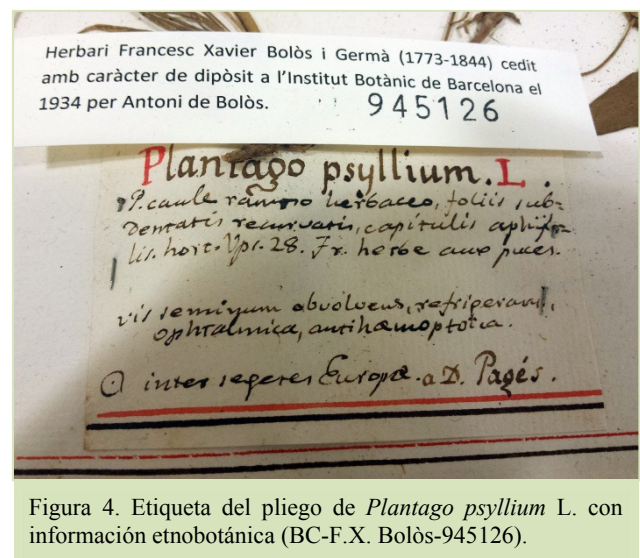 Herbari Francesc Xavier Bolòs i Germà (1773-1844) cedit
amb caràcter de dipòsit a l'Institut Botànic de Barcelona el
1934 per Antoni de Bolòs. 945126
Plantago psyllium. L.
P. caule ramoso herbaceo, foliis sub-
dentatis recurvatis, capitulis aphyl-
lis. hort. Ups. 28. Fr. herbe aux puces.
vis seminum obvolvens, refrigerans,
ophtalmica, antihæmoptoica.
☉ inter segetes Europæ. a D. Pagés.
Figura 4. Etiqueta del pliego de Plantago psyllium L. con
información etnobotánica (BC-F.X. Bolòs-945126).